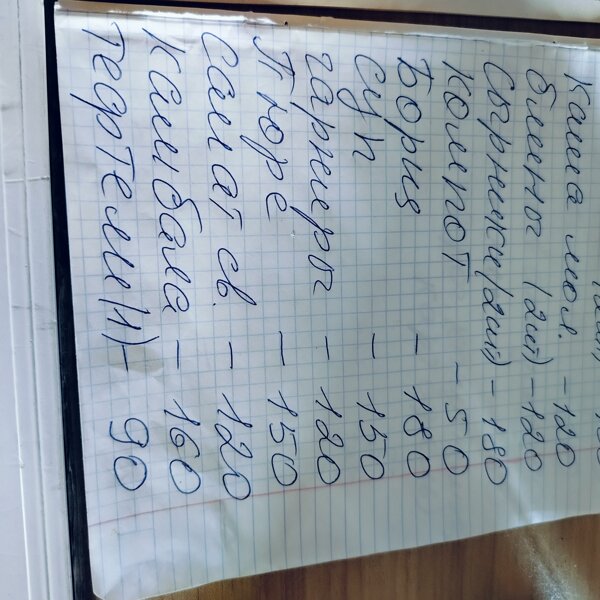 Каша мол. - 120
блины (2шт) - 120
Сырники (2шт) - 180
Компот - 50
Борщ - 180
Суп - 150
гарниры - 120
Пюре - 150
Салат св. - 120
Камбала - 160
Тефтели (1) - 90